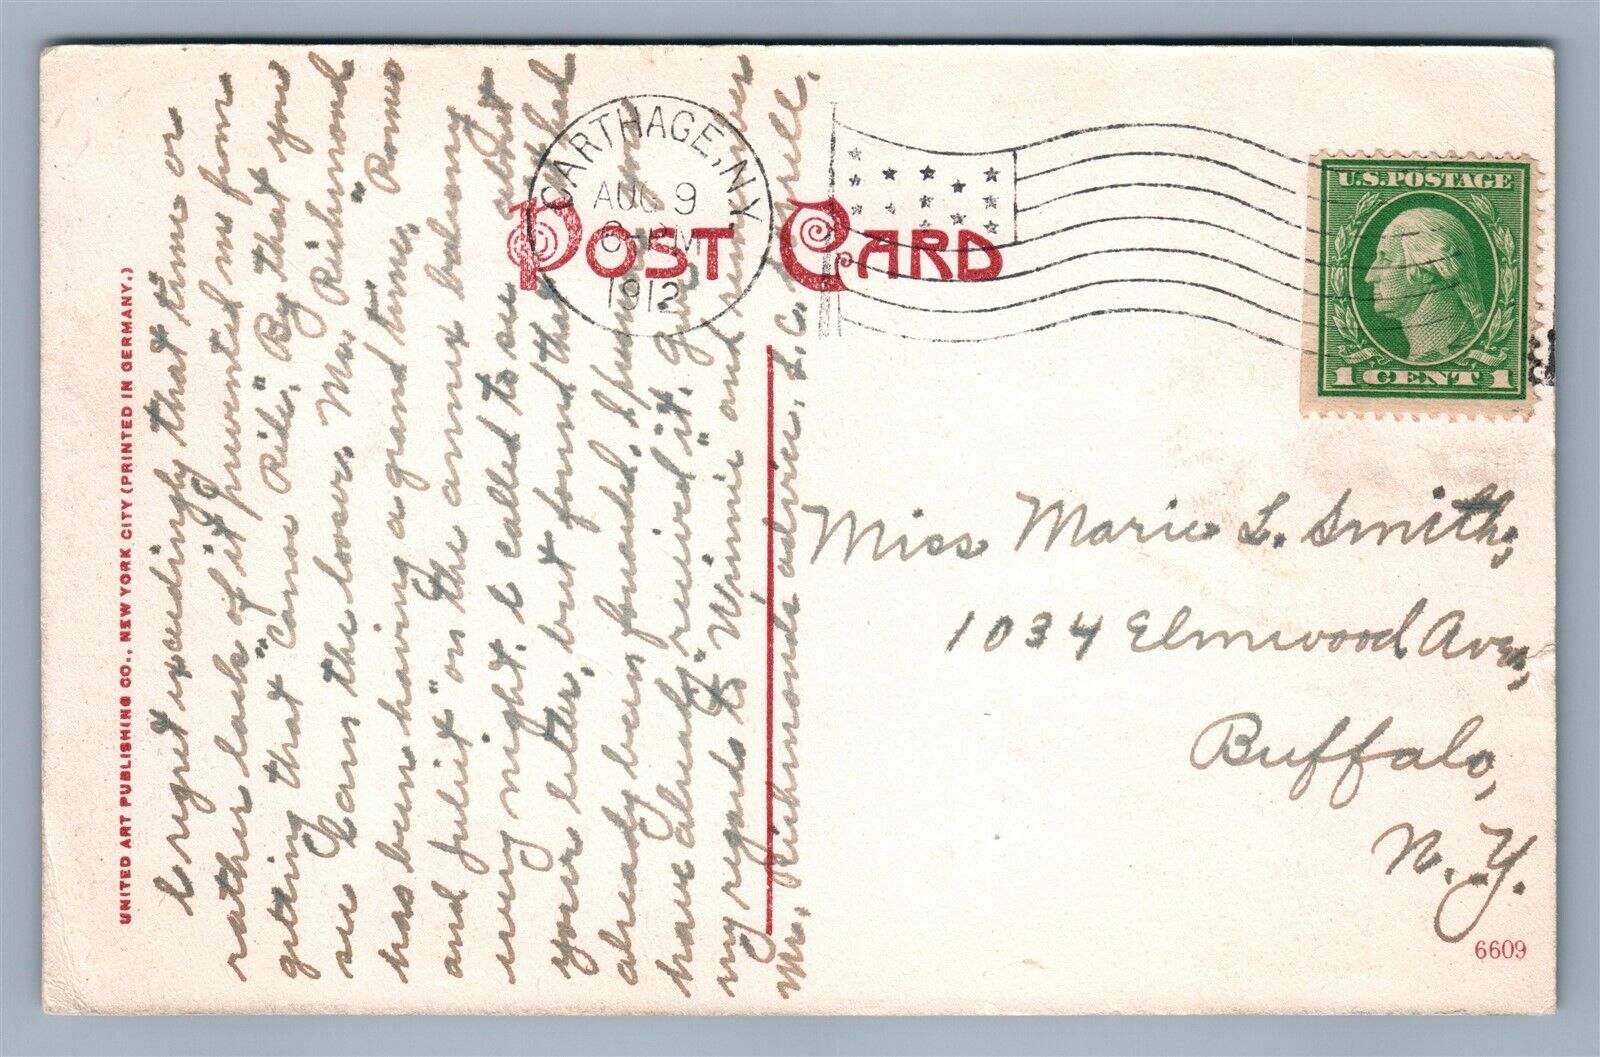 UNITED ART PUBLISHING CO., NEW YORK CITY (PRINTED IN GERMANY.)
POST CARD
CARTHAGE, N.Y.
AUG 9
6-PM
1912
U.S. POSTAGE
1 CENT 1
I regret exceedingly that time or
rather lack of it prevented me from
getting that "Canoe Ride". By that you
see I am the looser. Mr. Richmond
has been having a grand time, "Romeo
and Juliet" on the annex balcony
every night. I called to see about
your letter, but found that it had
already been forwarded, I presume you
have already received it. Give
my regards to "Winnie" and remember
Mr. Richmonds advice, &c.
Miss Marie L. Smith,
1034 Elmwood Ave.,
Buffalo,
N.Y.
6609